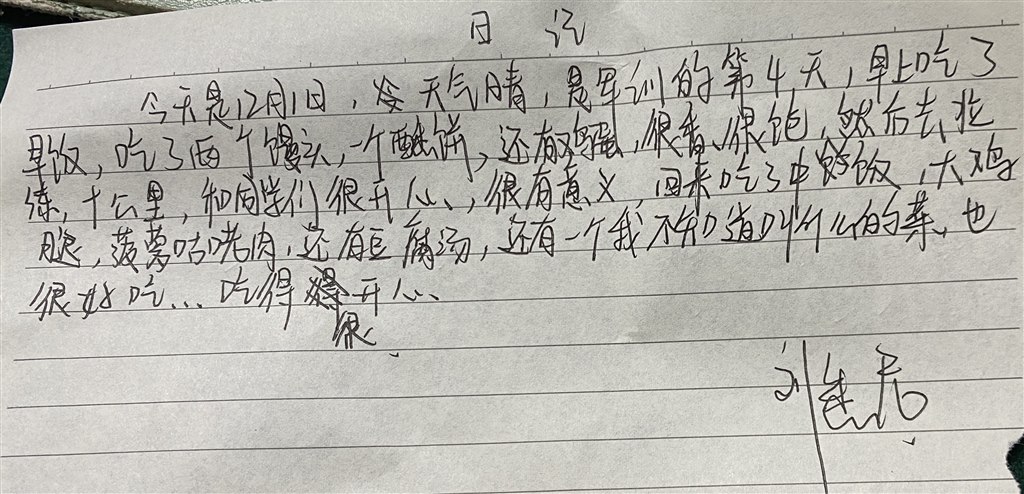 日 记
今天是12月1日，冷天气晴，是军训的第4天，早上吃了
早饭，吃了两个馒头，一个酥饼，还有鸡蛋，很香很饱，然后去拉
练，十公里，和同学们很开心，很有意义，回来吃了中饭，大鸡
腿，菠萝咕咾肉，还有豆腐汤，还有一个我不知道叫什么的菜，也
很好吃... 吃得很开心